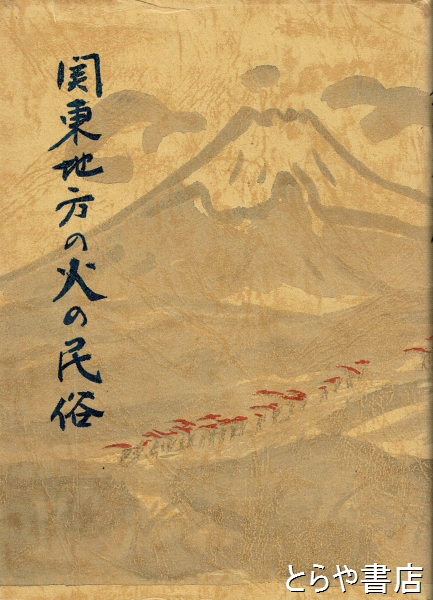 関東地方の火の民俗
とらや書店